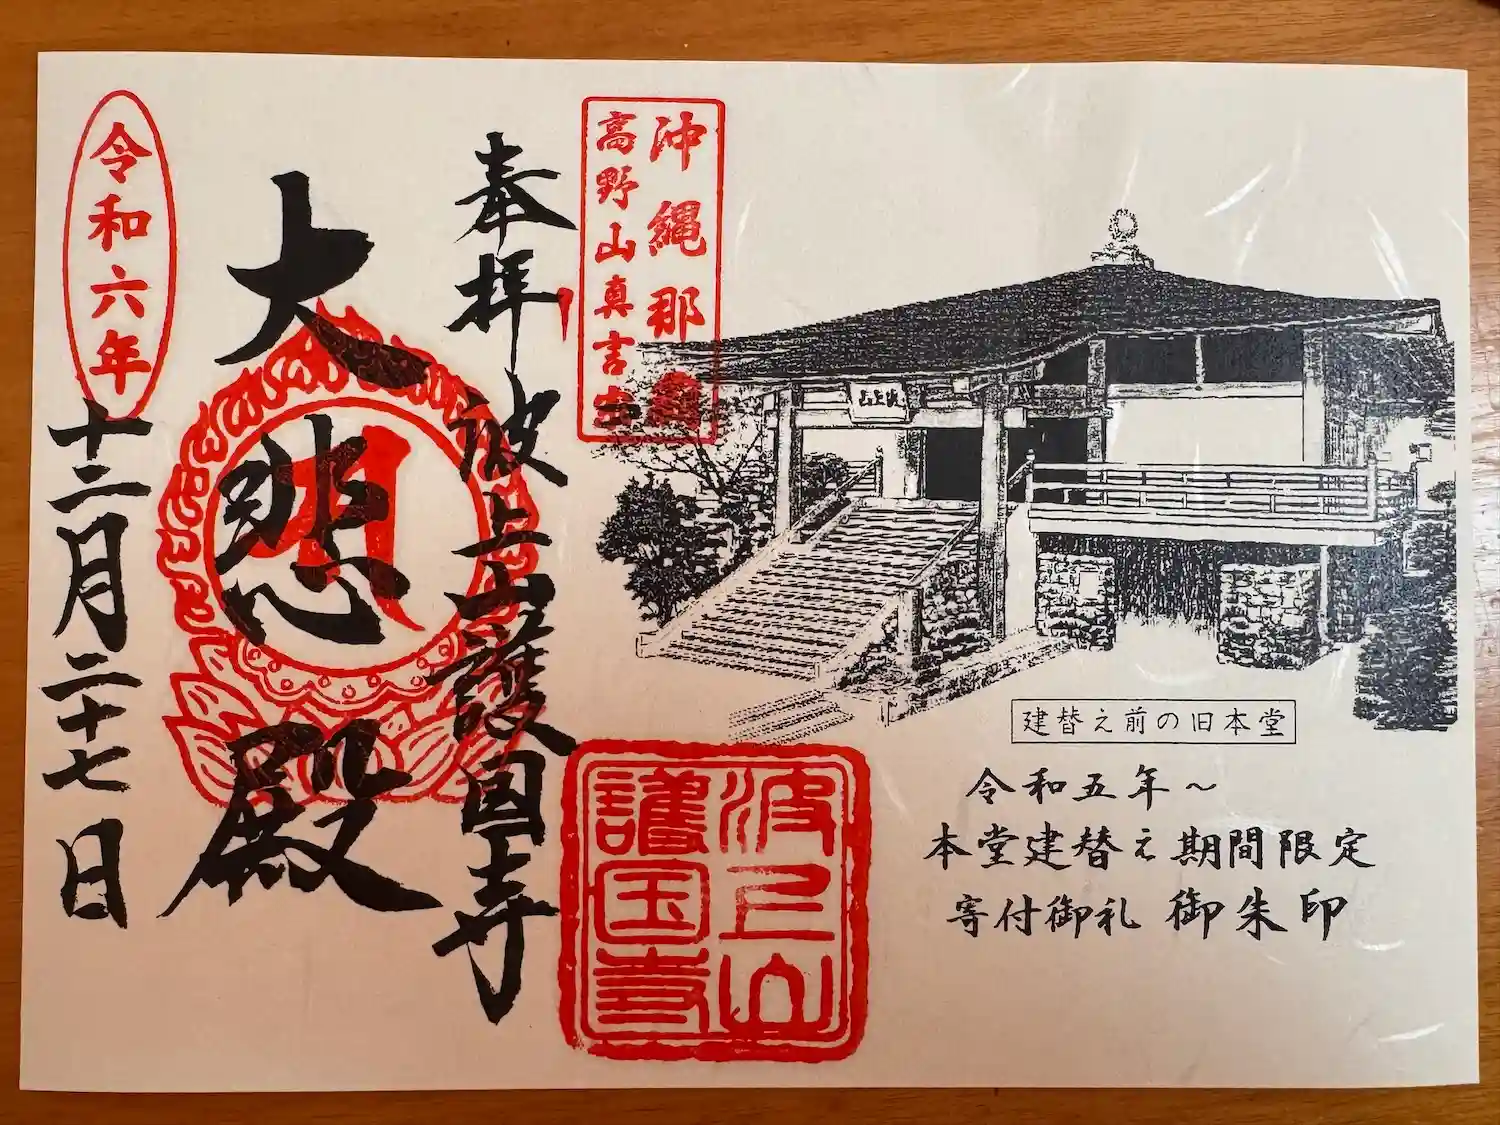 沖縄那覇
高野山真言宗
奉拝
波上山護国寺
大悲殿
令和六年
十二月二十七日
波上山
護国寺
波上山
建替え前の旧本堂
令和五年～
本堂建替え期間限定
寄付御礼 御朱印